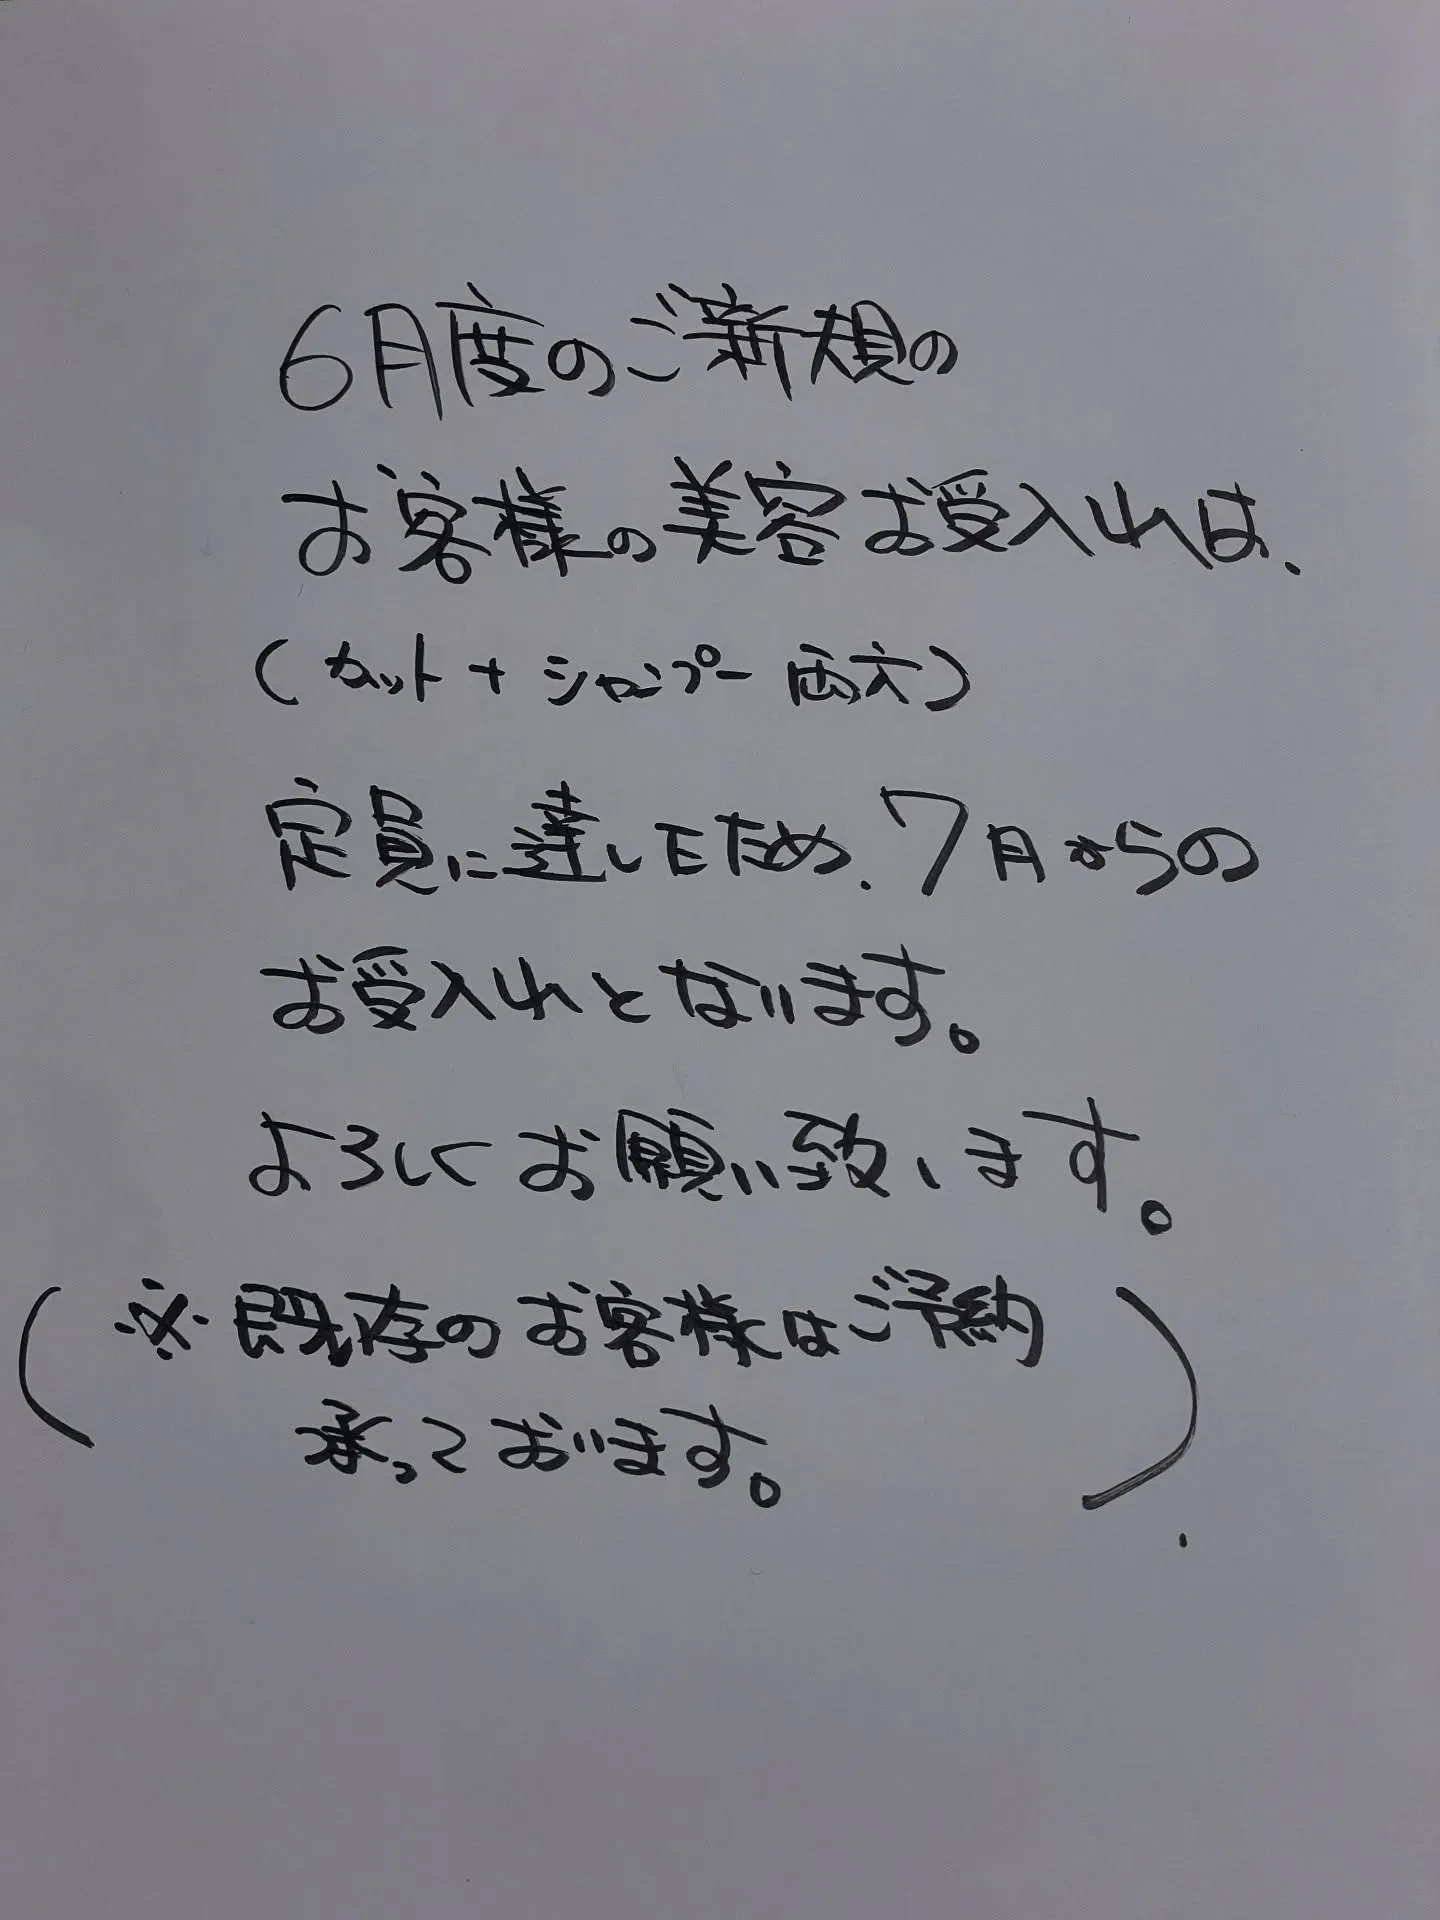 6月度のご新規の
お客様の美容お受入れは、
(カット+シャンプー両方)
定員に達したため、7月からの
お受入れとなります。
よろしくお願い致します。
(※既存のお客様はご予約
承っております。)